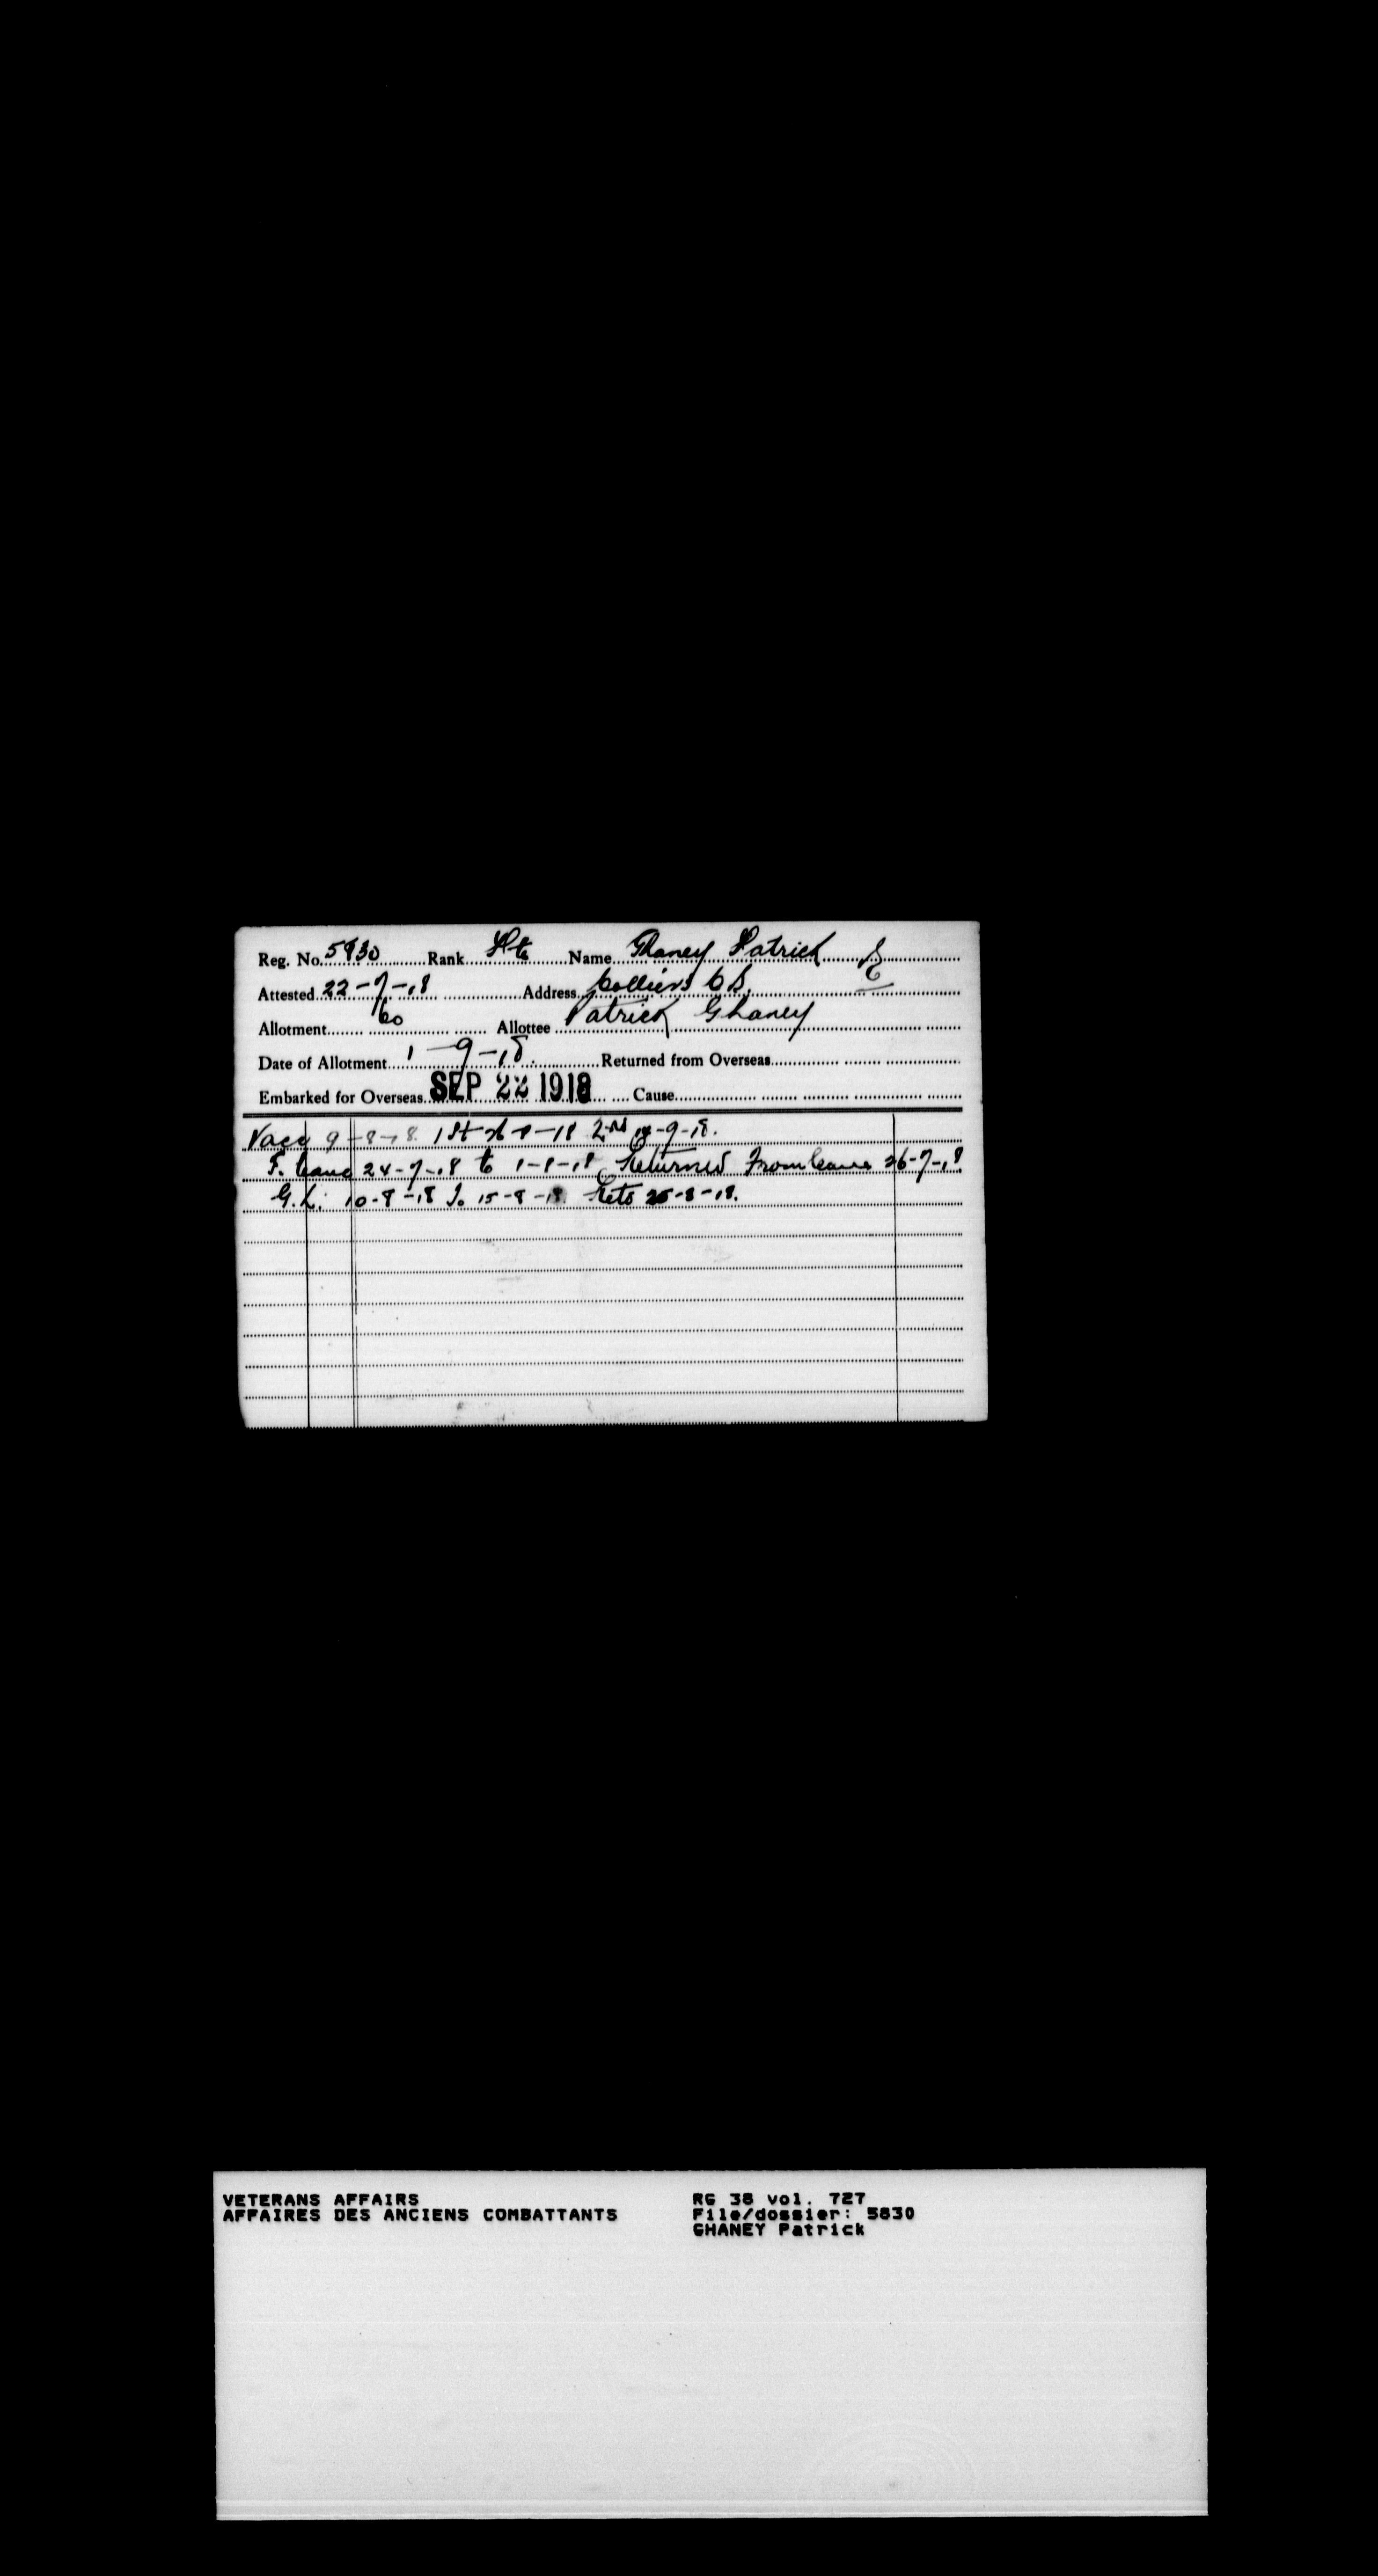 Reg. No. 5830 Rank Pte Name Ghaney Patrick E
Attested 22-7-18 Address Colliers C B.
Allotment 60 Allottee Patrick Ghaney
Date of Allotment 1-9-18. Returned from Overseas
Embarked for Overseas SEP 22 1918 Cause
Vacc 9-8-18 1st 26-8-18 2nd -9-18.
F. Leave 24-7-18 to 1-8-18 Returned From leave 26-7-18
G.L. 10-8-18 To 15-8-18 Retd 25-8-18.
VETERANS AFFAIRS RG 38 vol. 727
AFFAIRES DES ANCIENS COMBATTANTS File/dossier: 5830
GHANEY Patrick